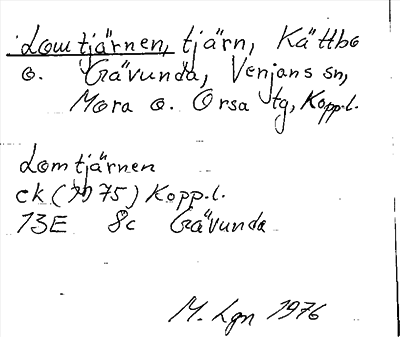 Lomtjärnen, tjärn, Kättbo
o. Gävunda, Venjans sn,
Mora o. Orsa tg, Kopp.l.
Lomtjärnen
ck (1975) Kopp.l.
13E 8c Gävunda
M. Lgn 1976